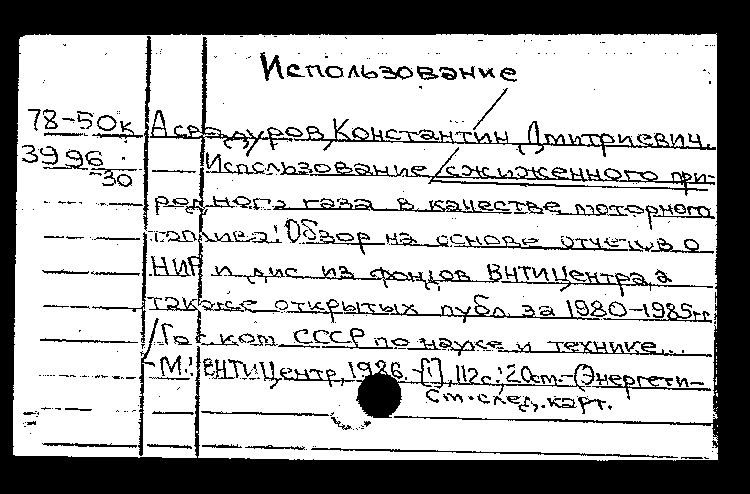 Использование
78-50к Асрадуров, Константин Дмитриевич.
3996
30
Использование сжиженного при-
родного газа в качестве моторного
топлива: Обзор на основе отчетов о
НИР и дис. из фондов ВНТИЦентра, а
также открытых публ. за 1980-1985гг.
/Гос. ком. СССР по науке и технике...
-М.: ВНТИЦентр, 1986.-[1], 112с.; 20см.-(Энергети-
См. след. карт.